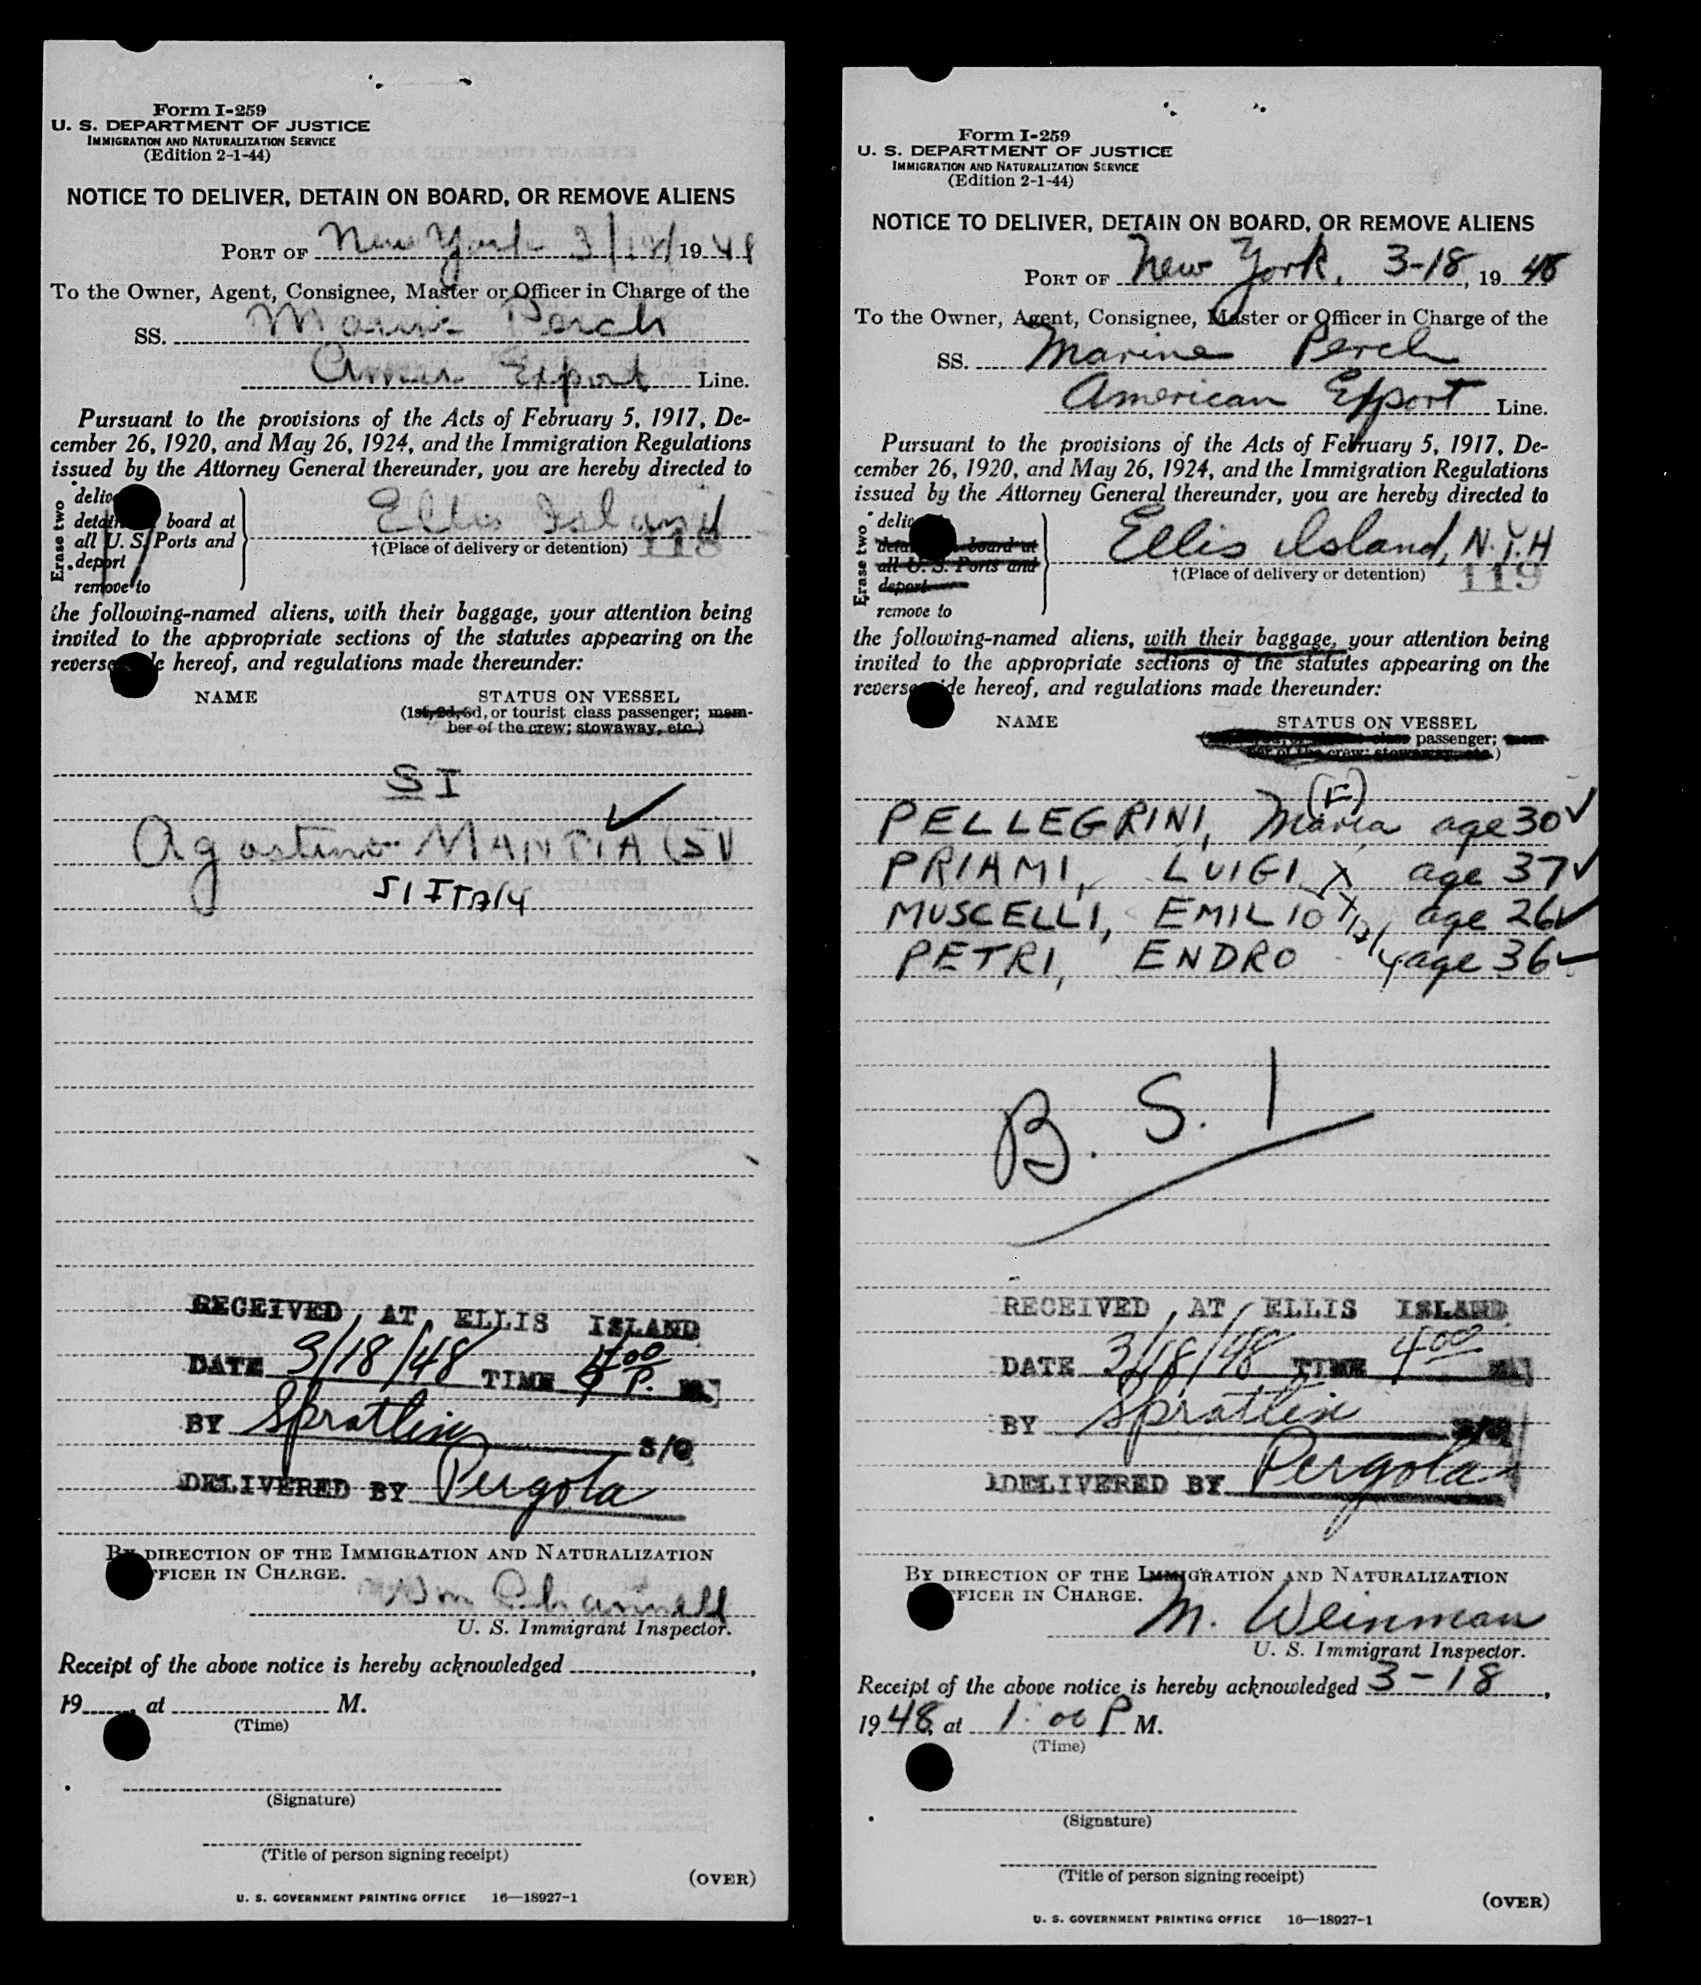 Form I-259
U. S. DEPARTMENT OF JUSTICE
IMMIGRATION AND NATURALIZATION SERVICE
(Edition 2-1-44)
NOTICE TO DELIVER, DETAIN ON BOARD, OR REMOVE ALIENS
PORT OF New York 3/18/ 19 48
To the Owner, Agent, Consignee, Master or Officer in Charge of the
SS. Marine Perch
Amer. Export Line.
Pursuant to the provisions of the Acts of February 5, 1917, De-
cember 26, 1920, and May 26, 1924, and the Immigration Regulations
issued by the Attorney General thereunder, you are hereby directed to
Erase two
board at
all U. S. Ports and
deport
remove to
Ellis Island
†(Place of delivery or detention) 118
the following-named aliens, with their baggage, your attention being
invited to the appropriate sections of the statutes appearing on the
hereof, and regulations made thereunder:
NAME STATUS ON VESSEL
(1st, 2d, 3d, or tourist class passenger; mem-
ber of the crew; stowaway, etc.)
SI
Agostino MANTIA
SI ITALY
RECEIVED AT ELLIS ISLAND
DATE 3/18/48 TIME 4:00 P. M.
BY Spratlin S/O
DELIVERED BY Pergola
BY DIRECTION OF THE IMMIGRATION AND NATURALIZATION
OFFICER IN CHARGE.
Wm
U. S. Immigrant Inspector.
Receipt of the above notice is hereby acknowledged ,
19 , at M.
(Time)
(Signature)
(Title of person signing receipt)
(OVER)
U. S. GOVERNMENT PRINTING OFFICE 16—18927-1
Form I-259
U. S. DEPARTMENT OF JUSTICE
IMMIGRATION AND NATURALIZATION SERVICE
(Edition 2-1-44)
NOTICE TO DELIVER, DETAIN ON BOARD, OR REMOVE ALIENS
PORT OF New York, 3-18, 19 48
To the Owner, Agent, Consignee, Master or Officer in Charge of the
SS. Marine Perch
American Export Line.
Pursuant to the provisions of the Acts of February 5, 1917, De-
cember 26, 1920, and May 26, 1924, and the Immigration Regulations
issued by the Attorney General thereunder, you are hereby directed to
Erase two
board at
all U. S. Ports and
deport
remove to
Ellis Island, N.Y.H
†(Place of delivery or detention) 119
the following-named aliens, with their baggage, your attention being
invited to the appropriate sections of the statutes appearing on the
hereof, and regulations made thereunder:
NAME STATUS ON VESSEL
passenger; mem-
ber of the crew; stowaway, etc.)
(F)
PELLEGRINI, Maria age 30
PRIAMI, LUIGI age 37
MUSCELLI, EMILIO age 26
PETRI, ENDRO age 36
B. S. I
RECEIVED AT ELLIS ISLAND
DATE 3/18/48 TIME 4:00 M.
BY Spratlin S/O
DELIVERED BY Pergola
BY DIRECTION OF THE IMMIGRATION AND NATURALIZATION
OFFICER IN CHARGE.
M. Weinman
U. S. Immigrant Inspector.
Receipt of the above notice is hereby acknowledged 3-18,
1948, at 1:00 P M.
(Time)
(Signature)
(Title of person signing receipt)
(OVER)
U. S. GOVERNMENT PRINTING OFFICE 16—18927-1